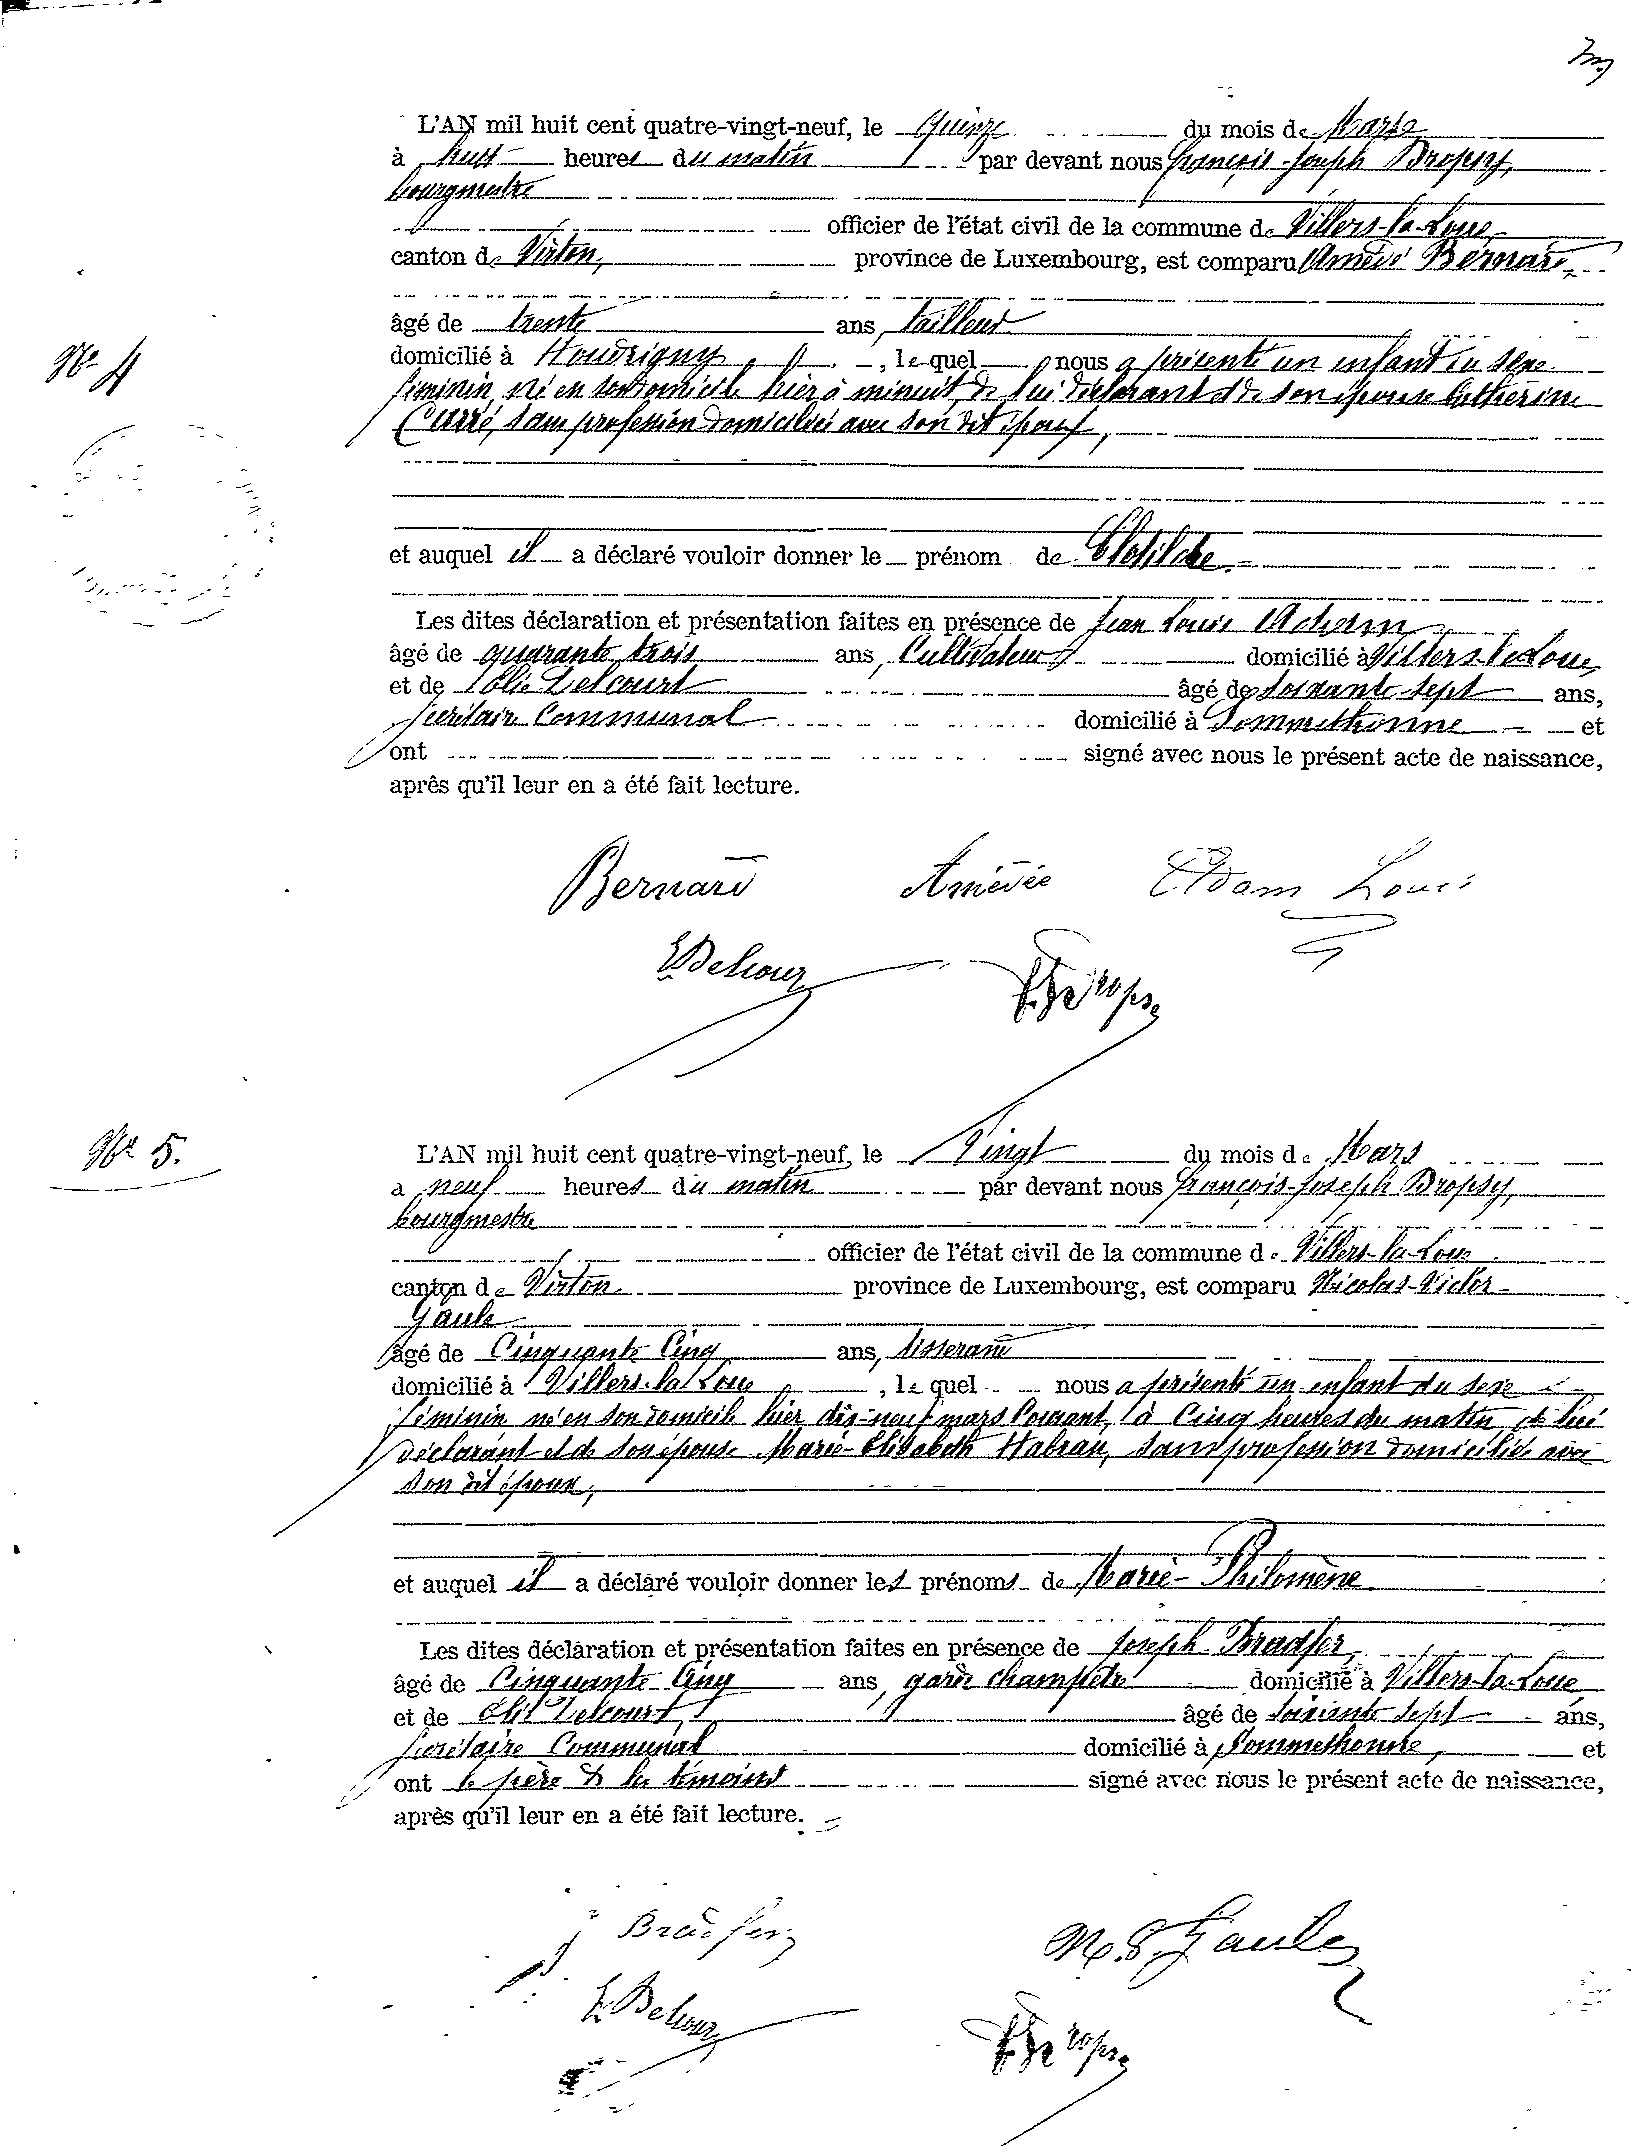 L'AN mil huit cent quatre-vingt-neuf, le Quinze du mois de Mars
à huit heures du matin par devant nous François-Joseph Dropsy,
bourgmestre
officier de l'état civil de la commune de Villers-la-Loue,
canton de Virton, province de Luxembourg, est comparu Amédé Bernard
âgé de trente ans, tailleur
domicilié à Houdrigny, le quel nous a présenté un enfant du sexe
féminin, né en son domicile hier à minuit, de lui déclarant et de son épouse Catherine
Carré, sans profession domiciliée avec son dit époux,
et auquel il a déclaré vouloir donner le prénom de Clotilde.
Les dites déclaration et présentation faites en présence de Jean Louis Adam,
âgé de quarante trois ans, Cultivateur domicilié à Villers-la-Loue,
et de Elie Delcourt âgé de soixante sept ans,
secrétaire Communal domicilié à Sommethonne et
ont signé avec nous le présent acte de naissance,
après qu'il leur en a été fait lecture.
Nº 4
Bernard Amédée Adam Louis
E Delcour
Nº 5.
L'AN mil huit cent quatre-vingt-neuf, le Vingt du mois de Mars
a neuf heures du matin par devant nous François-Joseph Dropsy,
bourgmestre
officier de l'état civil de la commune de Villers-la-Loue
canton de Virton. province de Luxembourg, est comparu Nicolas-Victor
Gaule
âgé de Cinquante Cinq ans, tisserand
domicilié à Villers-la-Loue, le quel nous a présenté un enfant du sexe
féminin né en son domicile hier dix-neuf mars Courant, à Cinq heures du matin de lui
déclarant et de son épouse Marie-Elisabeth Habran, sans profession domiciliée avec
son dit époux,
et auquel il a déclaré vouloir donner les prénoms de Marie-Philomène
Les dites déclaration et présentation faites en présence de Joseph Bradfer,
âgé de Cinquante Cinq ans, garde champêtre domicilié à Villers-la-Loue
et de Elie Delcourt, âgé de soixante sept ans,
secrétaire Communal domicilié à Sommethonne, et
ont le père & les témoins signé avec nous le présent acte de naissance,
après qu'il leur en a été fait lecture.
J Bradfer N. V. Gaule
E Delcour